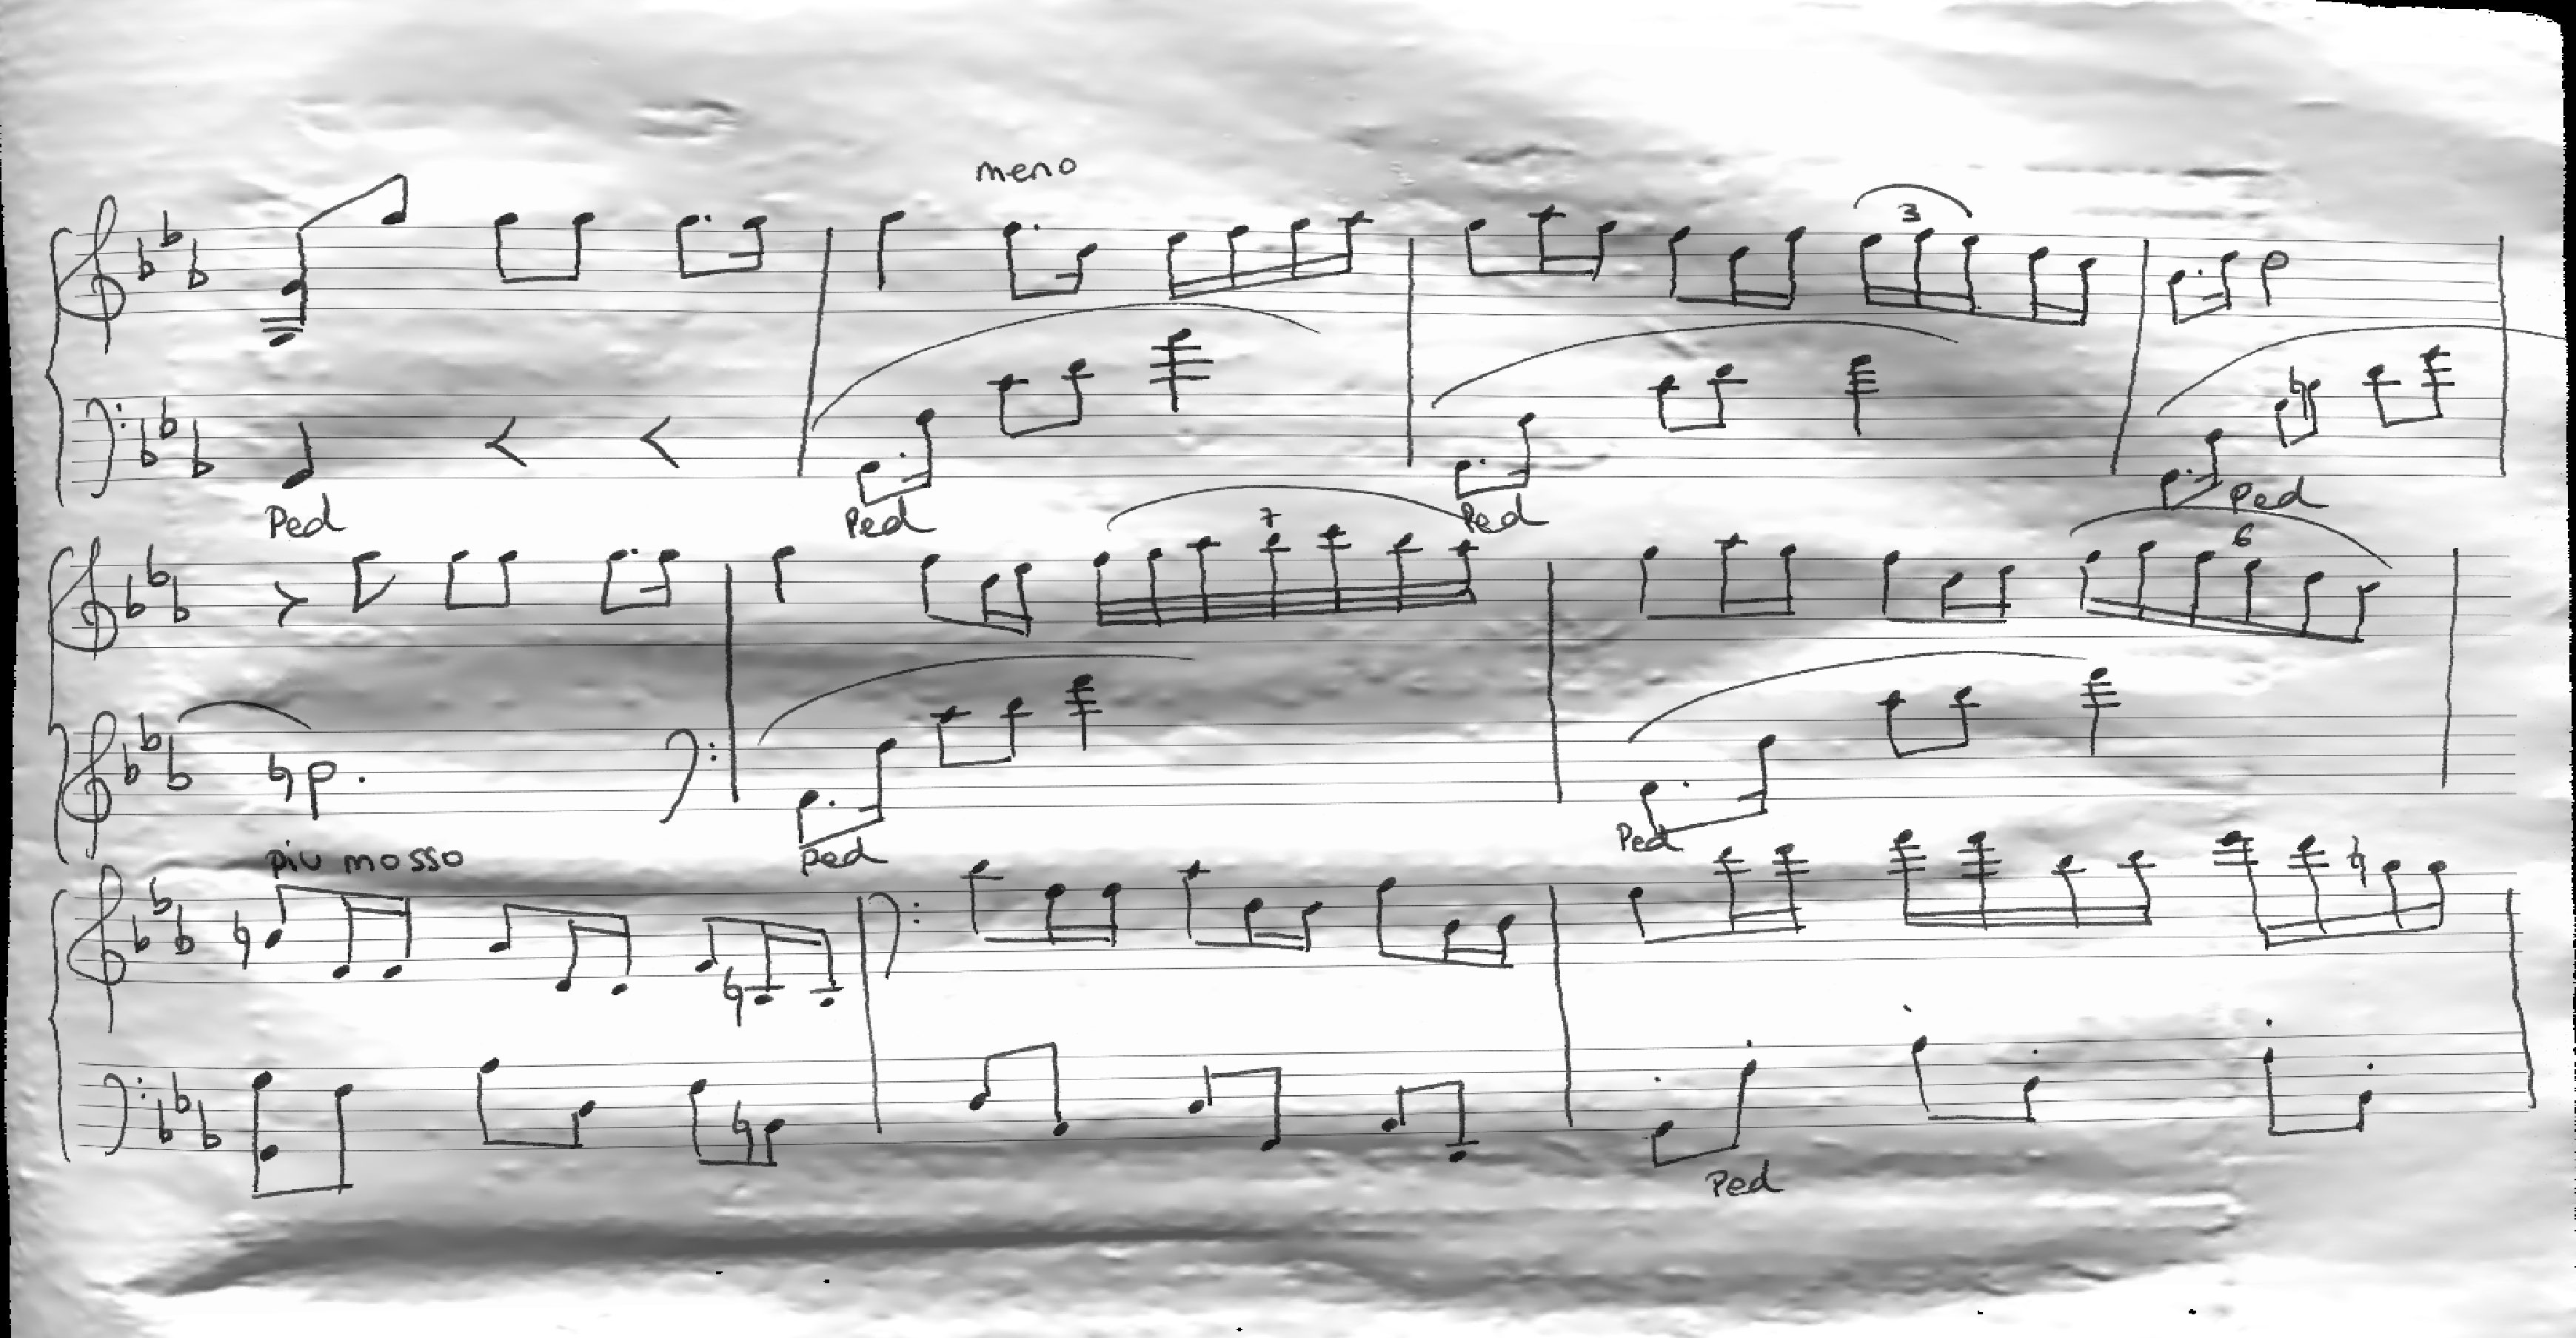 meno
3
Ped Ped Ped Ped
7 6
Ped Ped
piu mosso
Ped